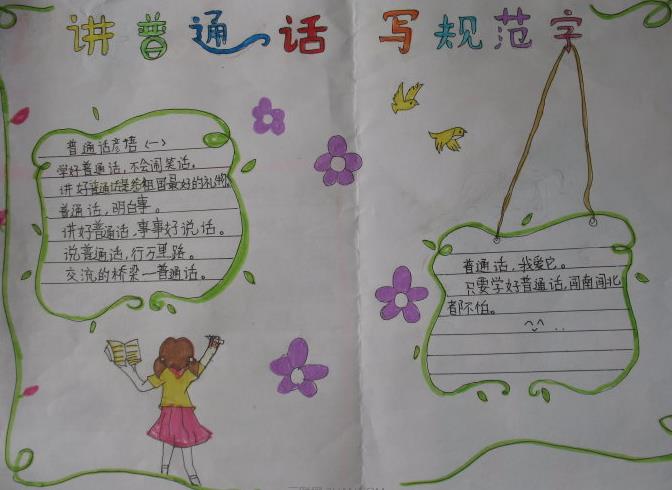 讲普通话 写规范字
普通话彦语（一）
学好普通话，不会闹笑话。
讲好普通话是给祖国最好的礼物。
普通话，明白事。
讲好普通话，事事好说话。
说普通话，行万里路。
交流的桥梁一普通话。
普通话，我爱它。
只要学好普通话，闯南闯北
都不怕。